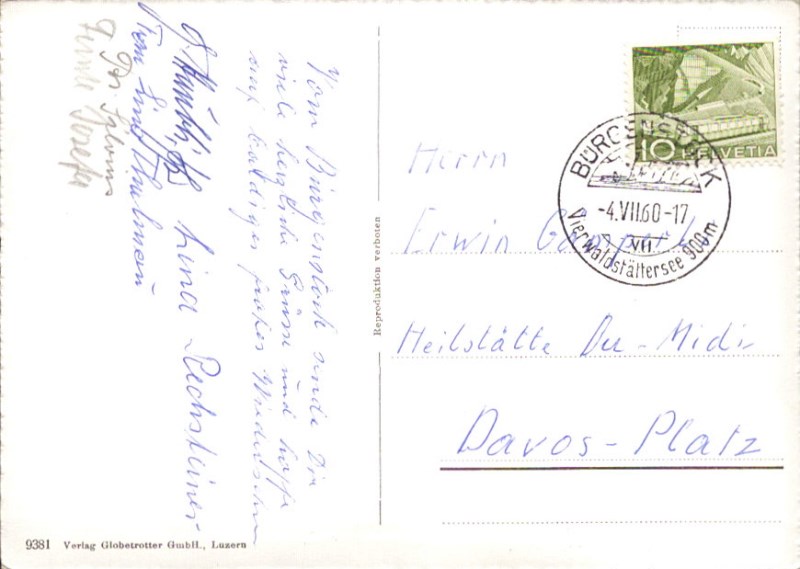 Vom Bürgenstock sende Dir
viele herzliche Grüsse und hoffe
auf baldiges frohes Wiedersehen
Lina Rechsteiner
Reproduktion verboten
HELVETIA
10
BÜRGENSTOCK
-4.VII.60-17
VII
Vierwaldstättersee 900m
Herrn
Erwin
Heilstätte Du-Midi
Davos-Platz
9381 Verlag Globetrotter GmbH., Luzern